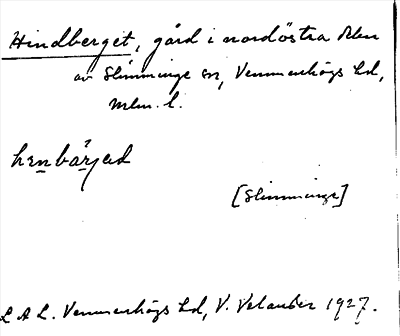 Hindberget, gård i nordöstra delen
av Slimminge sn, Vemmenhögs hd,
Mlm. l.
henbärjed
[Slimminge]
L A L. Vemmenhögs hd, V. Velander 1927.